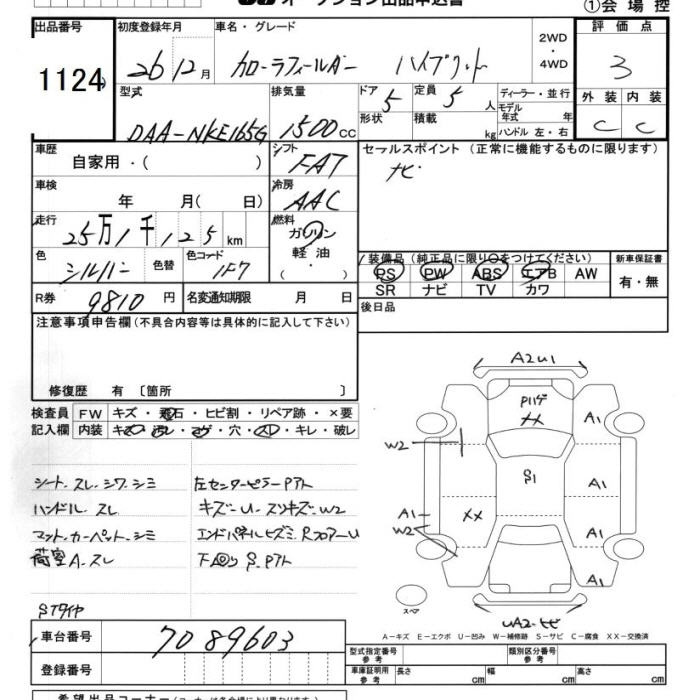 オークション出品申込書
①会場控
出品番号 初度登録年月 車名・グレード 評価点
1124 26 12月 カローラフィールダー ハイブリット 2WD・4WD 3
型式 排気量 ドア 定員 ディーラー・並行 外装 内装
DAA-NKE165G 1500CC 5 5人 モデル年式 年 C C
形状 積載 kg ハンドル 左・右
車歴 シフト セールスポイント (正常に機能するものに限ります)
自家用・( ) FAT ナビ
車検 冷房
年 月( 日) AAC
走行 燃料
25万1千125km ガソリン
軽油
・( )
色 色替 色コード 装備品 (純正品に限り○をつけてください) 新車保証書
シルバー 1F7 PS PW ABS エアB AW 有・無
SR ナビ TV カワ
R券 9810円 名変通知期限 月 日
後日品
注意事項申告欄(不具合内容等は具体的に記入して下さい)
修復歴 有 〔箇所 〕
検査員 FW キズ・飛石・ヒビ割・リペア跡・×要
記入欄 内装 キズ・汚レ・コゲ・穴・スレ・キレ・破レ
シート.スレ.シワ.シミ 左センターピラーPアト
ハンドル スレ キズ-U-スリキズ-W2
マット.カーペット.シミ エンドパネルヒズミ RフロアーU
荷室A.スレ 下回りS.Pアト
STタイヤ
A2U1
Pハゲ
XX
A1
W2
S1
A1
A1
W2
XX
A1
A1
スペア
UA2-ヒビ
A-キズ E-エクボ U-凹み W-補修跡 S-サビ C-腐食 XX-交換済
車台番号 7089603
型式指定番号 参考 類別区分番号 参考
登録番号 車庫証明用 参考 長さ cm 幅 cm 高さ cm
希望出品コーナー